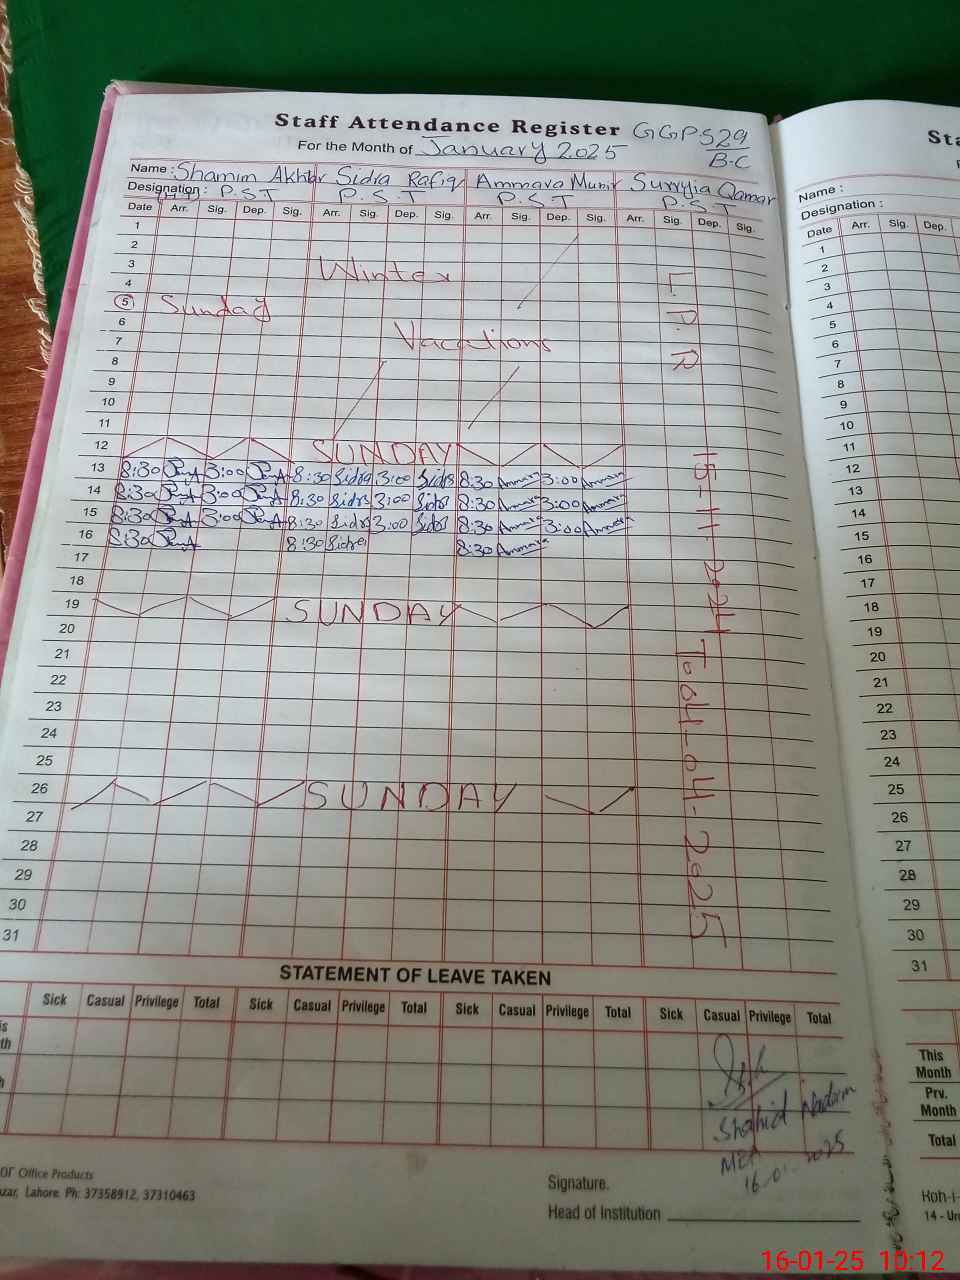 Staff Attendance Register GGPS 29
B-C
For the Month of January 2025
Name : Shamim Akhtar Sidra Rafiq Ammara Munir Surryia Qamar
Designation : (H.T) P.S.T P.S.T P.S.T P.S.T
Date Arr. Sig. Dep. Sig. Arr. Sig. Dep. Sig. Arr. Sig. Dep. Sig. Arr. Sig. Dep. Sig.
1
2
3 Winter
4
5 Sunday
6
7 Vacations
8
9
10
11
12 SUNDAY
13 8:30 3:00 8:30 Sidra 3:00 Sidra 8:30 Ammara 3:00 Ammara
14 8:30 3:00 8:30 Sidra 3:00 Sidra 8:30 Ammara 3:00 Ammara
15 8:30 3:00 8:30 Sidra 3:00 Sidra 8:30 Ammara 3:00 Ammara
16 8:30 8:30 Sidra 8:30 Ammara
17
18
19 SUNDAY
20
21
22
23
24
25
26 SUNDAY
27
28
29
30
31
L.P.R 15-11-2024 To 04-04-2025
STATEMENT OF LEAVE TAKEN
Sick Casual Privilege Total Sick Casual Privilege Total Sick Casual Privilege Total Sick Casual Privilege Total
is
th
h
Shahid Nadeem
MEA
16-01-2025
or Office Products
zar, Lahore. Ph: 37358912, 37310463
Signature.
Head of Institution
Sta
Name :
Designation :
Date Arr. Sig. Dep.
1
2
3
4
5
6
7
8
9
10
11
12
13
14
15
16
17
18
19
20
21
22
23
24
25
26
27
28
29
30
31
This
Month
Prv.
Month
Total
Koh-i-
14 - Ur
16-01-25 10:12